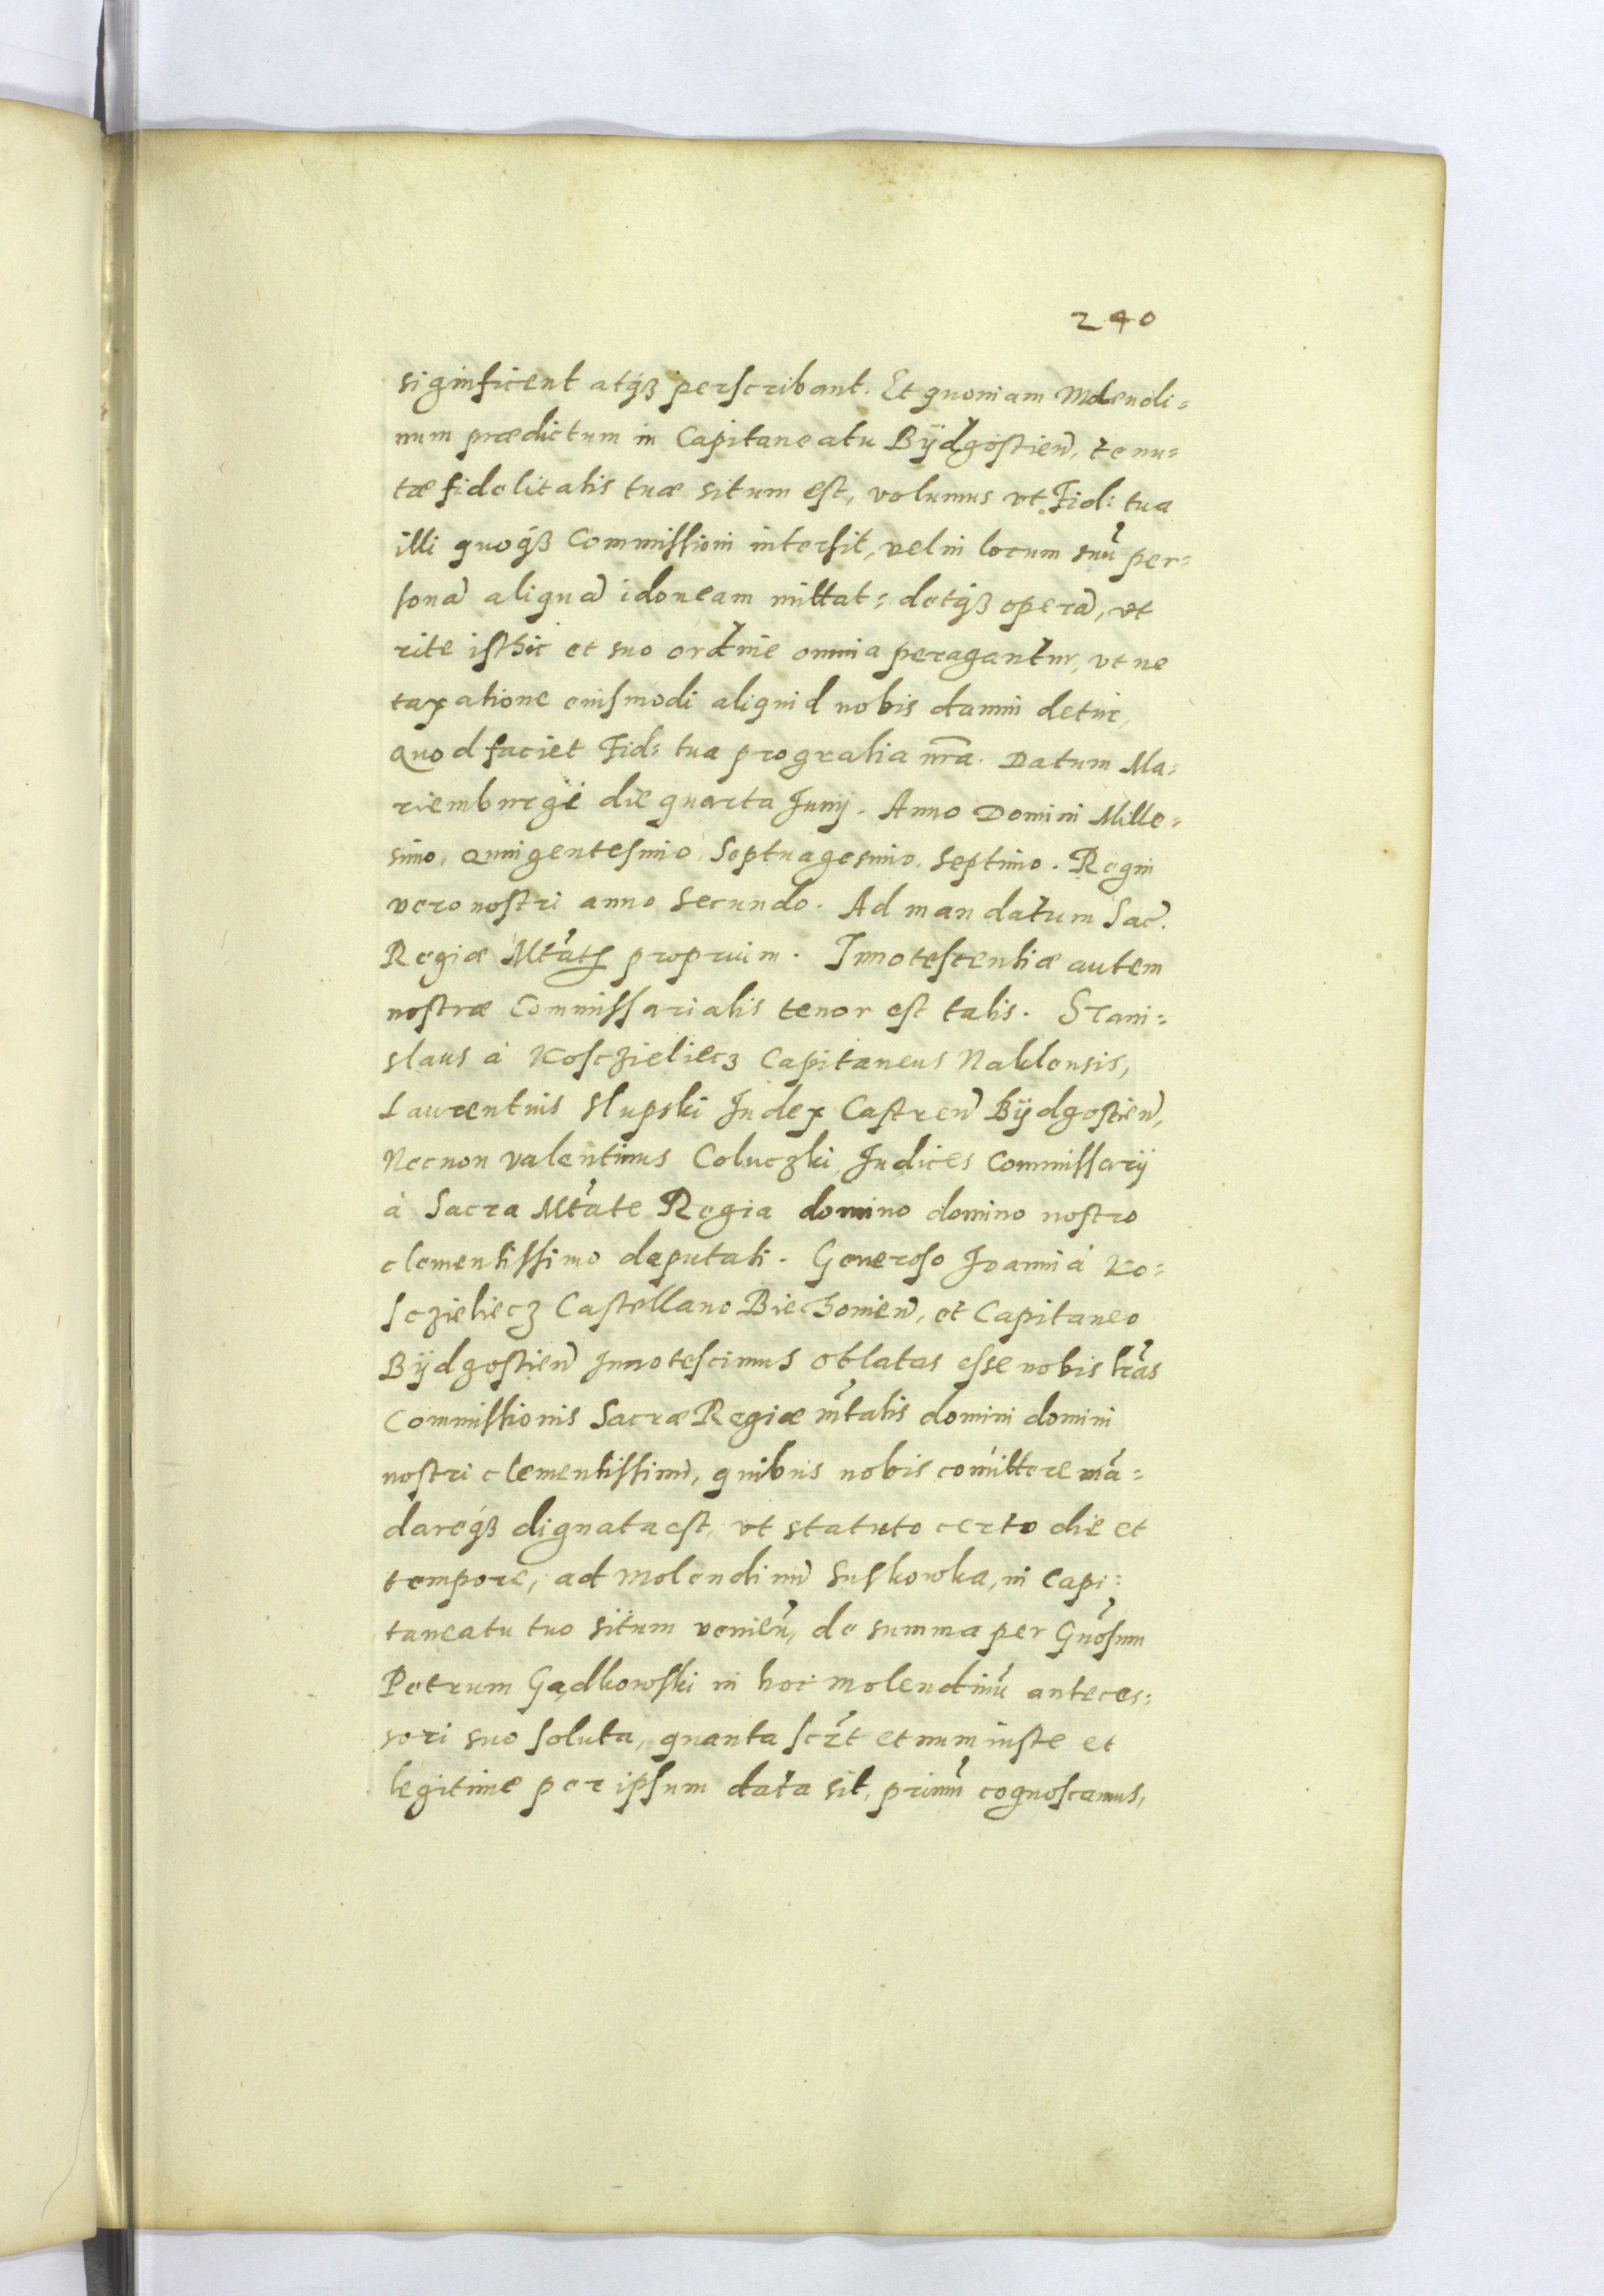 240
significent atq₃ perscribant. Et quoniam Molendi=
num prædictum in Capitaneatu Bÿdgostien̄, tenu=
tæ fidelitatis tuæ situm est, volumus vt Fid: tua
illi quoq₃ Commissioni intersit, vel in locum suū per=
sonā aliquā idoneam mittat: detq₃ operā, vt
rite isthic et suo ordine omnia peragantur, vt ne
taxatione euismodi aliquid nobis damni detur,
Quod faciet Fid: tua pro gratia nrā. Datum Ma=
riemburgi die quarta Junij. Anno Domini Mille=
simo, Quingentesimo, Septuagesimo, Septimo. Regni
vero nostri anno Secundo. Ad mandatum Sac̄.
Regiæ Mtāts proprium. Innotescentiæ autem
nostræ Commissarialis tenor est talis. Stani=
slaus à Kosczieliecz Capitaneus Naklensis,
Laurentius Slupski Iudex Castren̄ Bÿdgostien̄,
Necnon Valentinus Coluczki Iudices Commissarij
à Sacra Mtāte Regia domino domino nostro
clementissimo deputati. Generoso Joanni à Ko=
sczieliecz Castellano Biechouien̄, et Capitaneo
Bÿdgostien̄ Innotescimus oblatas esse nobis lrās
Commissionis Sacræ Regiæ m̄tatis domini domini
nostri clementissimi, quibus nobis com̄ittere mā=
dareq₃ dignata est, vt statuto certo die et
tempore, ad Molendinū Suskowka, in Capi=
taneatu tuo situm venien̄, de summa per Gnōsum
Petrum Gądkowski in hoc molendinū anteces=
sori suo soluta, quanta scrt̄ et num iuste et
legitime per ipsum data sit, primū cognoscamus,